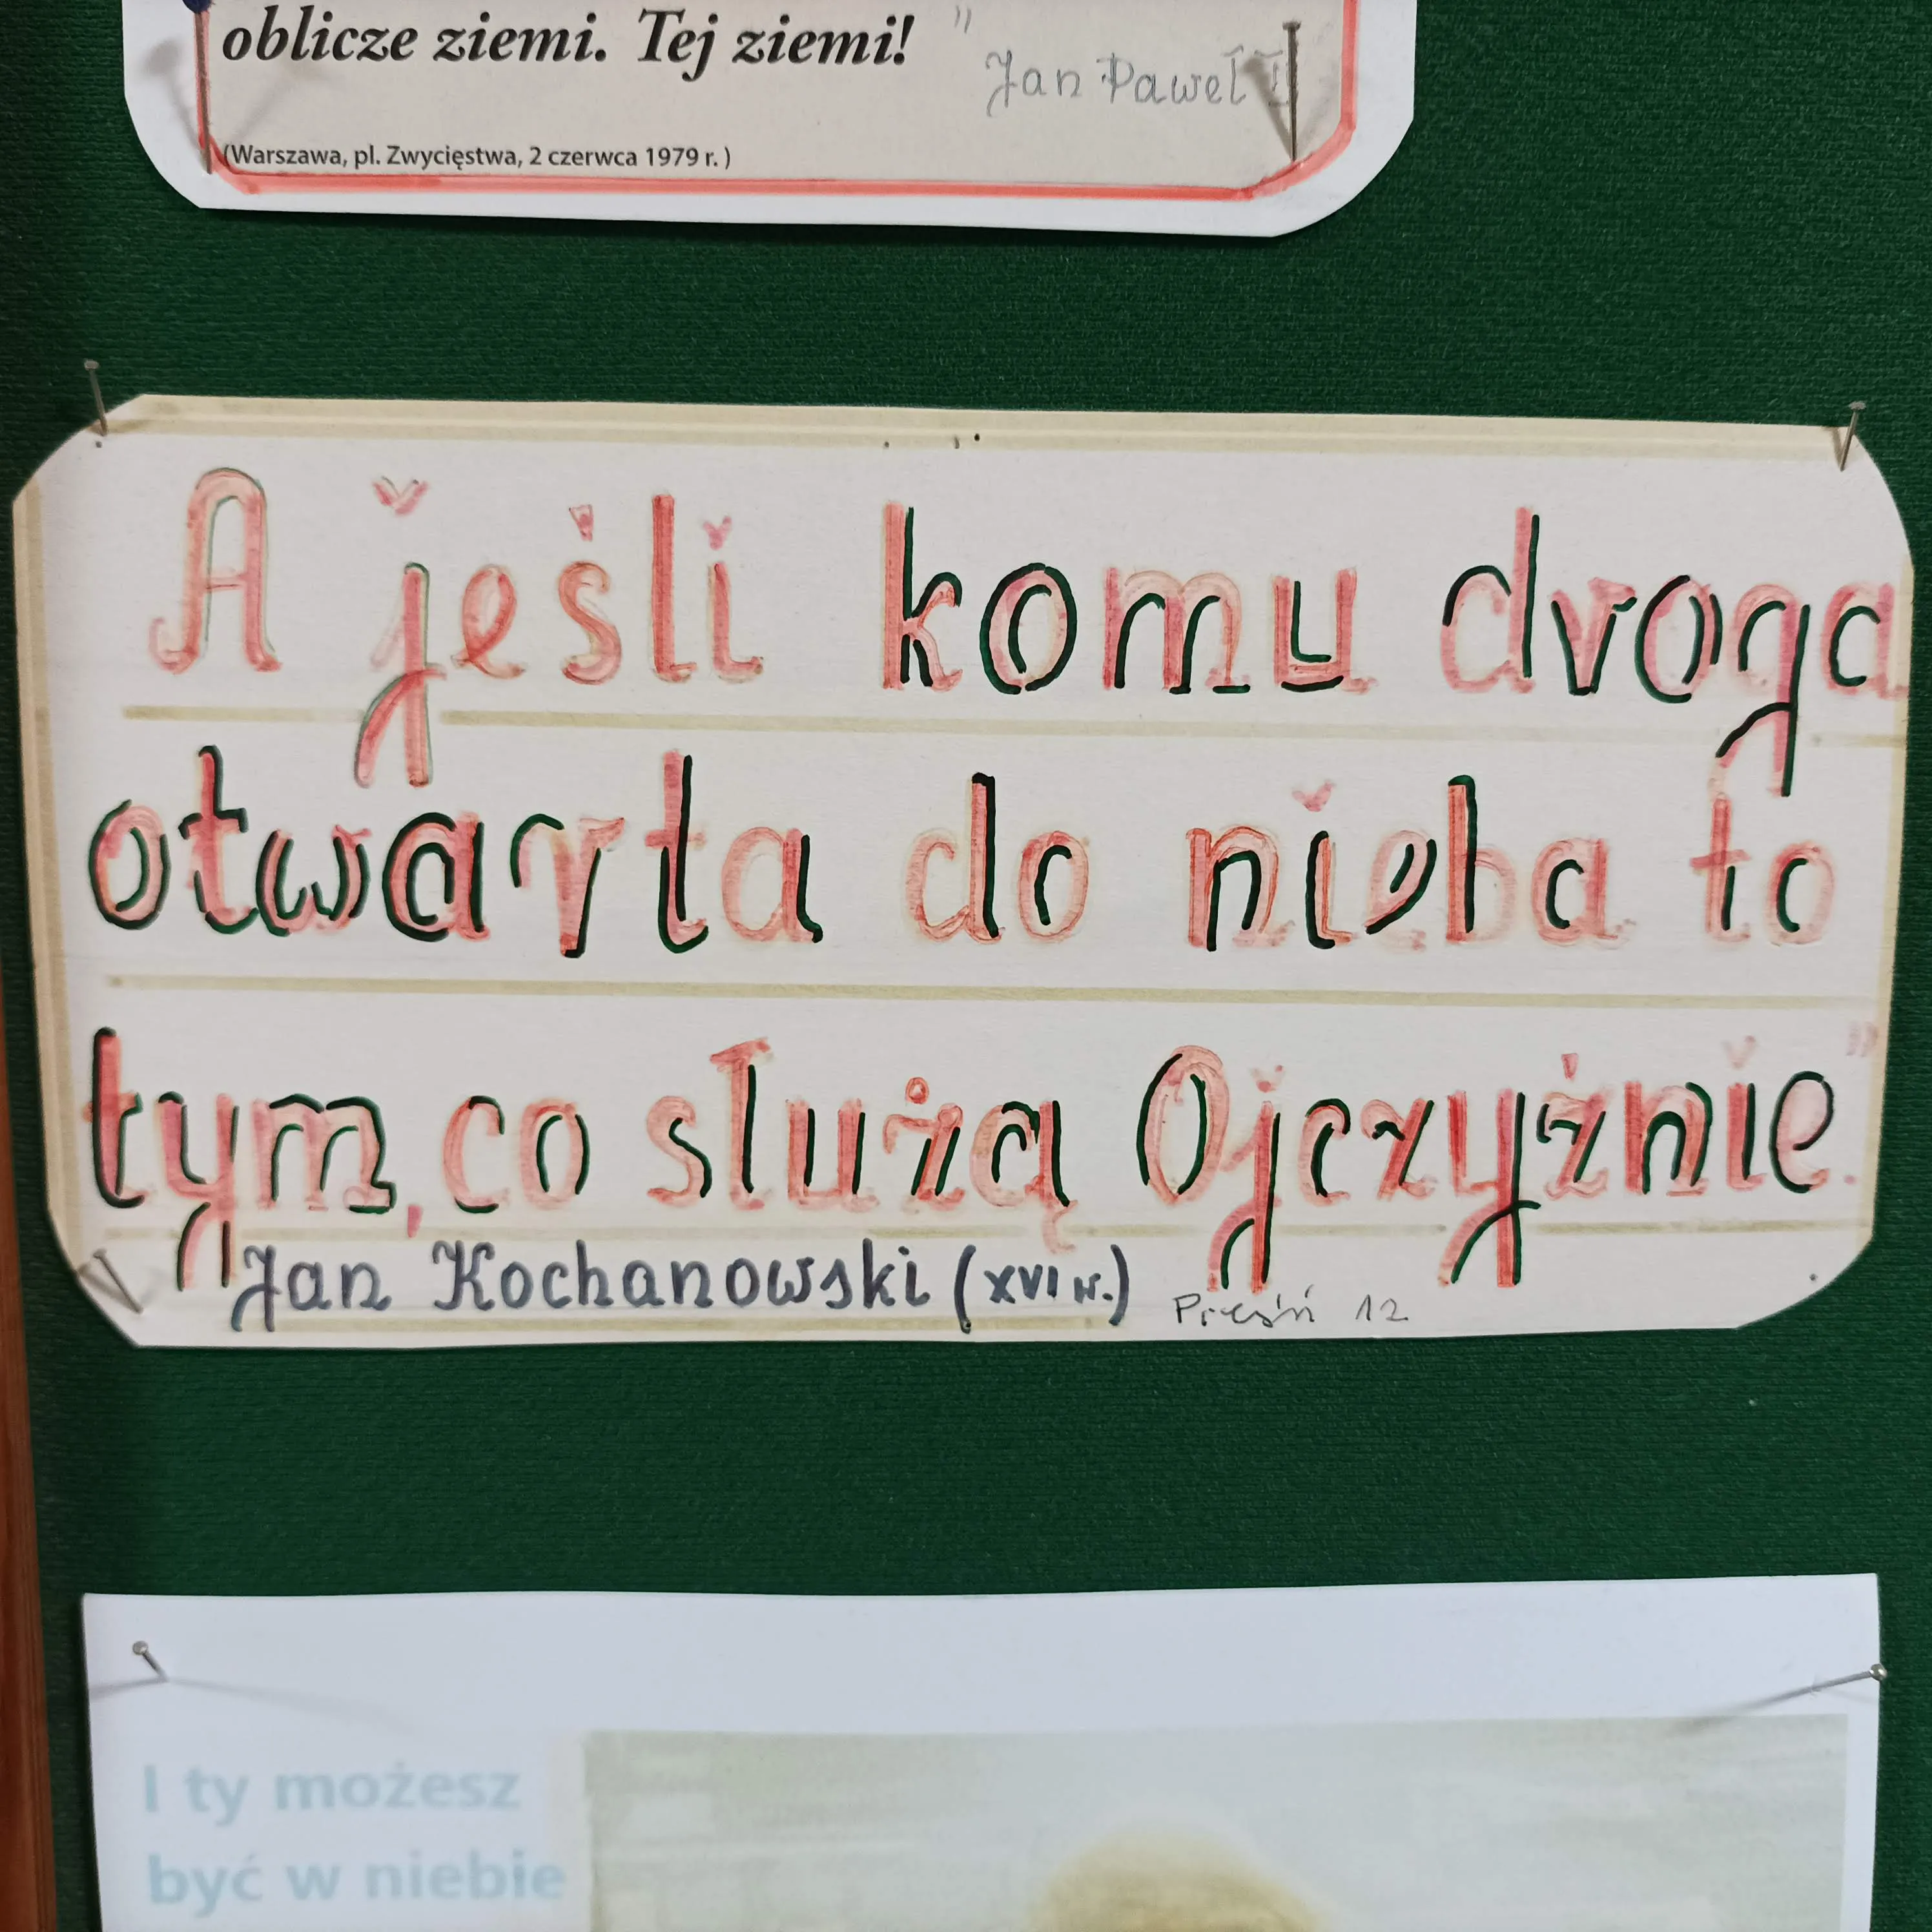 oblicze ziemi. Tej ziemi! "
Jan Paweł II
(Warszawa, pl. Zwycięstwa, 2 czerwca 1979 r. )
A jeśli komu droga
otwarta do nieba to
tym, co służą Ojczyźnie."
Jan Kochanowski (XVI w.)
Pieśń 12
I ty możesz
być w niebie